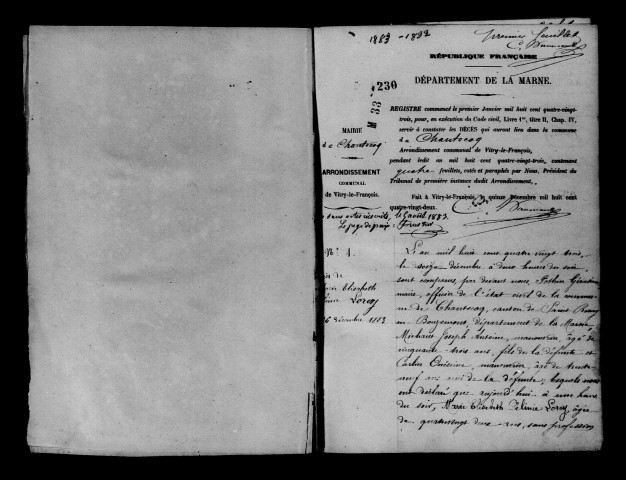 1883 - 1892
Premier feuillet
RÉPUBLIQUE FRANÇAISE
DÉPARTEMENT DE LA MARNE.
230
M 33
MAIRIE
de Chantecoq
ARRONDISSEMENT
COMMUNAL
de Vitry-le-François.
REGISTRE commencé le premier Janvier mil huit cent quatre-vingt-
trois, pour, en exécution du Code civil, Livre 1er, titre II, Chap. IV,
servir à constater les DÉCÈS qui auront lieu dans la commune
de Chantecoq
Arrondissement communal de Vitry-le-François,
pendant ledit an mil huit cent quatre-vingt-trois, contenant
quatre feuillets, cotés et paraphés par Nous, Président du
Tribunal de première instance dudit Arrondissement.
Fait à Vitry-le-François, le quinze Décembre mil huit cent
quatre-vingt-deux.
N° 1.
décembre 1883
L'an mil huit cent quatre vingt trois,
le seize décembre à deux heures du soir
sont comparus, par devant nous,
maire, officier de l'état civil de la commu-
ne de Chantecoq, canton de Saint Remy
en Bouzemont, département de la Marne,
Joseph Antoine, manouvrier, âgé de
cinquante trois ans, fils de la défunte et
manouvrier, âgé de trente
neuf ans, ami de la défunte, lesquels nous
ont déclaré que aujourd'hui à une heure
du soir, Marie Elisabeth Lorey, âgée
de quatrevingt deux ans, sans profession